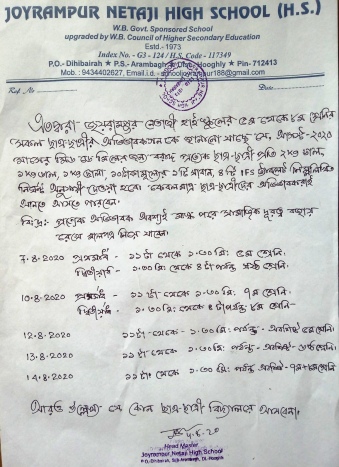 JOYRAMPUR NETAJI HIGH SCHOOL (H.S.)
W.B. Govt. Sponsored School
upgraded by W.B. Council of Higher Secondary Education
Estd.- 1973
Index No. - G3 - 124 / H.S. Code - 117349
P.O.- Dihibairah ★ P.S.- Arambagh ★ Hooghly ★ Pin- 712413
Mob. : 9434402627, Email.i.d.- schooljoyrampur188@gmail.com
Ref. No Date
এতদ্বারা জয়রামপুর নেতাজী হাই স্কুলের ৫ম থেকে ৮ম শ্রেণির
সকল ছাত্র-ছাত্রীর অভিভাবকগনকে জানানো যাচ্ছে যে আগস্ট-২০২০
মাসের মিড ডে মিলের জন্য বরাদ্দ প্রত্যেক ছাত্র-ছাত্রী প্রতি ২কেজি চাল,
১টি সাবান, IFS ট্যাবলেট নিম্নলিখিত
নির্ঘন্ট অনুযায়ী দেওয়া হবে। কেবলমাত্র ছাত্র-ছাত্রীদের অভিভাবকরাই
আসতে পারবেন।
বি:দ্র:- প্রত্যেক অভিভাবক অবশ্যই মাস্ক পরে সামাজিক দূরত্ব বজায়
রেখে মালপত্র নিয়ে যাবেন।
7.8.2020 প্রথমার্ধ - ১১টা থেকে ১.৩০মি: ৫ম শ্রেণি,
দ্বিতীয়ার্ধ - ১.৩০মি: থেকে ৪টা পর্যন্ত ষষ্ঠ শ্রেণি,
10.8.2020 প্রথমার্ধ - ১১টা থেকে ১.৩০মি: ৭ম শ্রেণি,
দ্বিতীয়ার্ধ - ১.৩০মি: থেকে ৪টা পর্যন্ত ৮ম শ্রেণি
12.8.2020 ১১টা থেকে - ১.৩০মি: পর্যন্ত - অবশিষ্ট ৫ম শ্রেণি
13.8.2020 ১১টা থেকে - ১.৩০মি: পর্যন্ত - অবশিষ্ট - ৬ষ্ঠ শ্রেণি
14.8.2020 ১১টা থেকে ১.৩০মি: পর্যন্ত অবশিষ্ট - ৭ম+৮ম শ্রেণি
আরও উল্লেখ্য যে কোন ছাত্র-ছাত্রী বিদ্যালয়ে আসবেনা।
4.8.20
Head Master
Joyrampur Netaji High School
P.O. Dihibairah, P.S. Arambagh, Dt. Hooghly